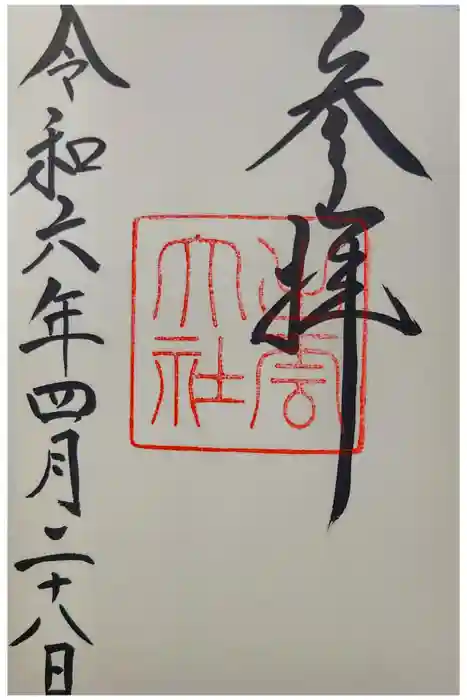 参拝
出雲大社
令和六年四月二十八日